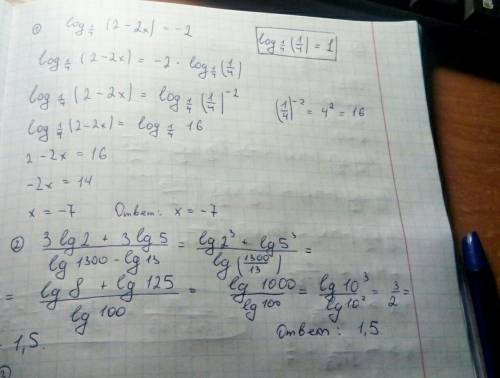 ① log_{1/4} (2-2x) = -2
log_{1/4} (2-2x) = -2 · log_{1/4} (1/4)
log_{1/4} (1/4) = 1
log_{1/4} (2-2x) = log_{1/4} (1/4)^{-2}
(1/4)^{-2} = 4² = 16
log_{1/4} (2-2x) = log_{1/4} 16
2-2x = 16
-2x = 14
x = -7 Ответ: x = -7
② (3 lg 2 + 3 lg 5)/(lg 1300 - lg 13) = (lg 2³ + lg 5³)/(lg (1300/13)) =
= (lg 8 + lg 125)/(lg 100) = (lg 1000)/(lg 100) = (lg 10³)/(lg 10²) = 3/2 =
= 1,5. Ответ: 1,5